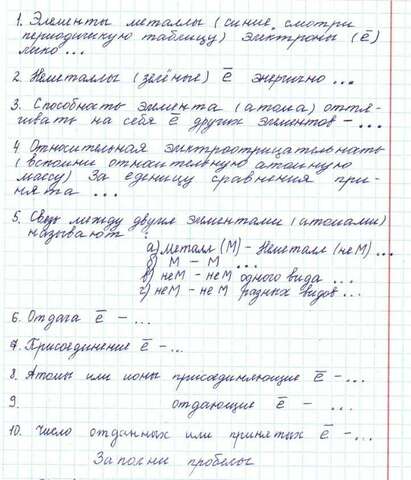 1. Элементы металлы (синие, смотри
периодическую таблицу) электроны (ē)
легко ...
2. Неметаллы (зелёные) ē энергично ...
3. Способность элемента (атома) оття-
гивать на себя ē других элементов – ...
4 Относительная электроотрицательность
(вспомни относительную атомную
массу) За единицу сравнения при-
нята ...
5. Связь между двумя элементами (атомами)
называют :
а) металл (М) - неметалл (неМ) ...
б) М – М ...
в) неМ – неМ одного вида ...
г) неМ – неМ разных видов ...
6. Отдача ē – ...
7. Присоединение ē – ...
8. Атомы или ионы присоединяющие ē – ...
9. отдающие ē – ...
10. Число отданных или принятых ē – ...
Заполни пробелы